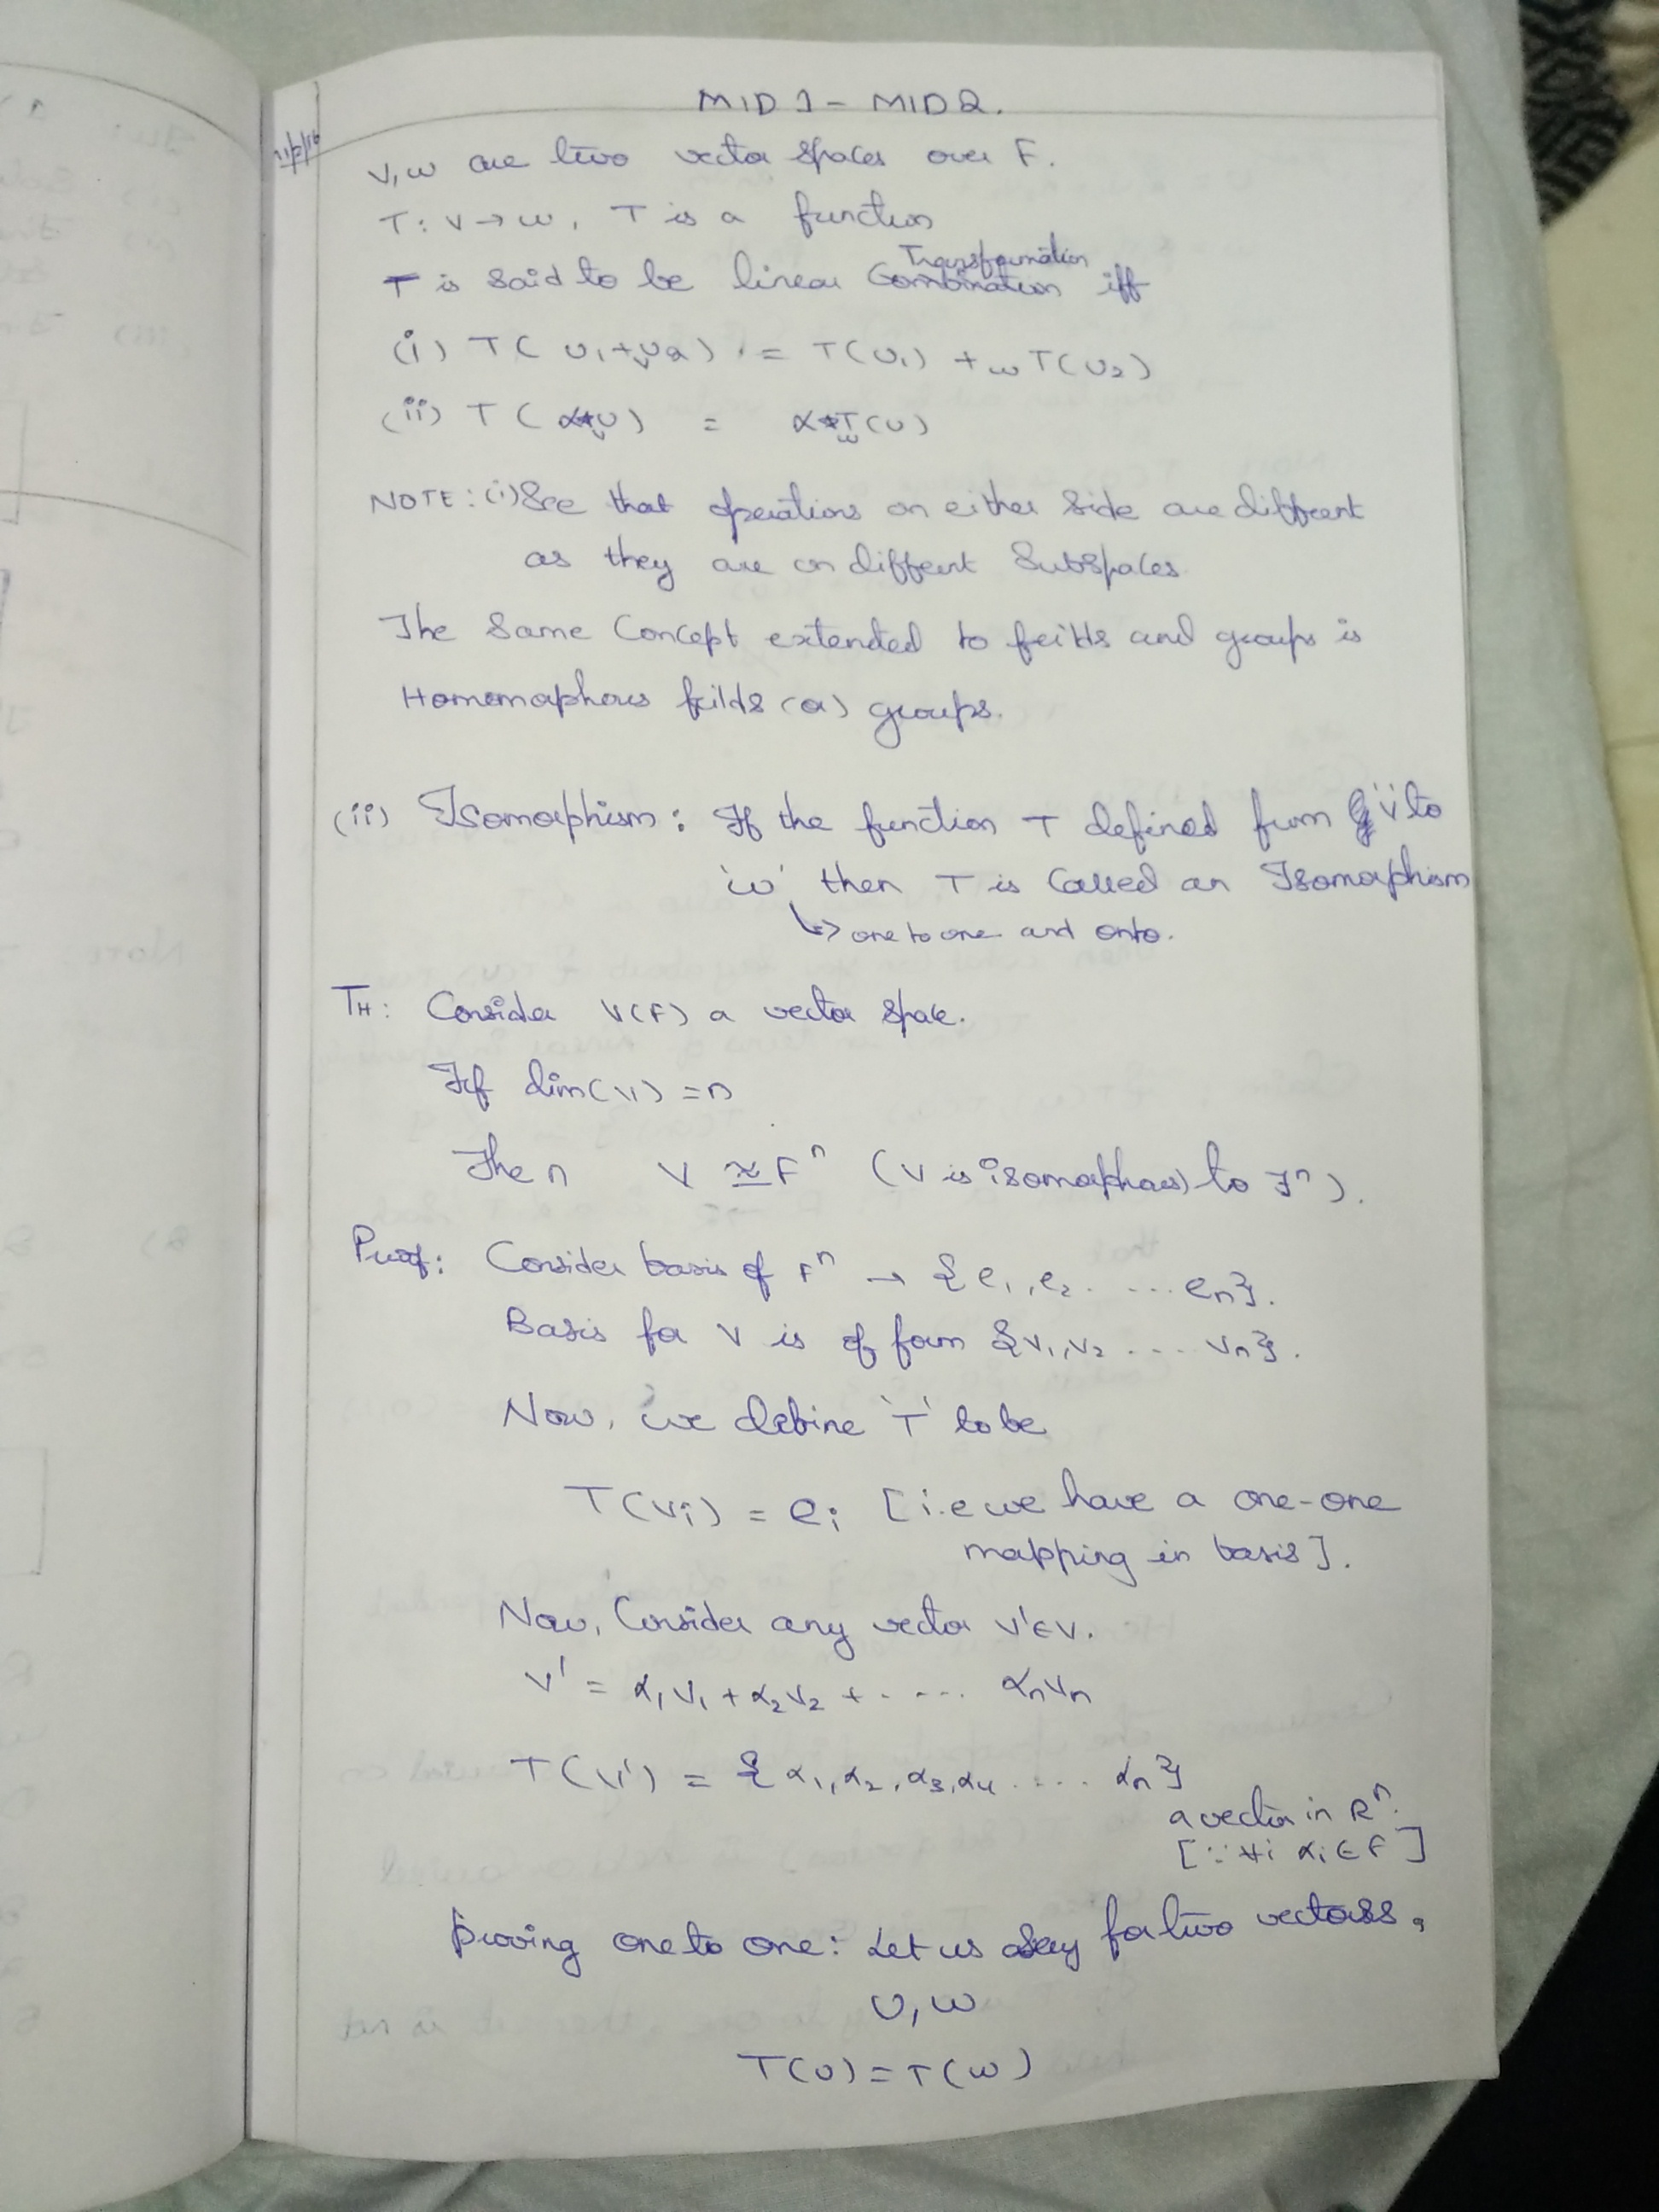 MID 1 - MID 2.
V, W are two vector spaces over F.
T: V → W, T is a function
Transformation
T is said to be linear Combination iff
(i) T( v₁ +ᵥ v₂ ) = T(v₁) +_w T(v₂)
(ii) T( α *ᵥ v ) = α *_w T(v)
NOTE: (i) See that operations on either side are different
as they are on different Subspaces.
The Same Concept extended to feilds and groups is
Homomorphous feilds (or) groups.
(ii) Isomorphism: If the function T defined from 'V' to
'W' then T is Called an Isomorphism
↳ one to one and onto.
TH: Consider V(F) a vector space.
If dim(V) = n
Then V ≅ Fⁿ (V is isomorphous to Fⁿ).
Proof: Consider basis of Fⁿ → {e₁, e₂ . ... eₙ}.
Basis for V is of form {v₁, v₂ ... vₙ}.
Now, we define 'T' to be
T(vᵢ) = eᵢ [i.e we have a one-one
mapping in basis].
Now, Consider any vector v' ∈ V.
v' = α₁v₁ + α₂v₂ + . ... αₙvₙ
T(v') = {α₁, α₂, α₃, α₄ .... αₙ}
a vector in Rⁿ.
[∵ ∀i αᵢ ∈ F]
proving one to one: Let us say for two vectors,
v, w
T(v) = T(w)